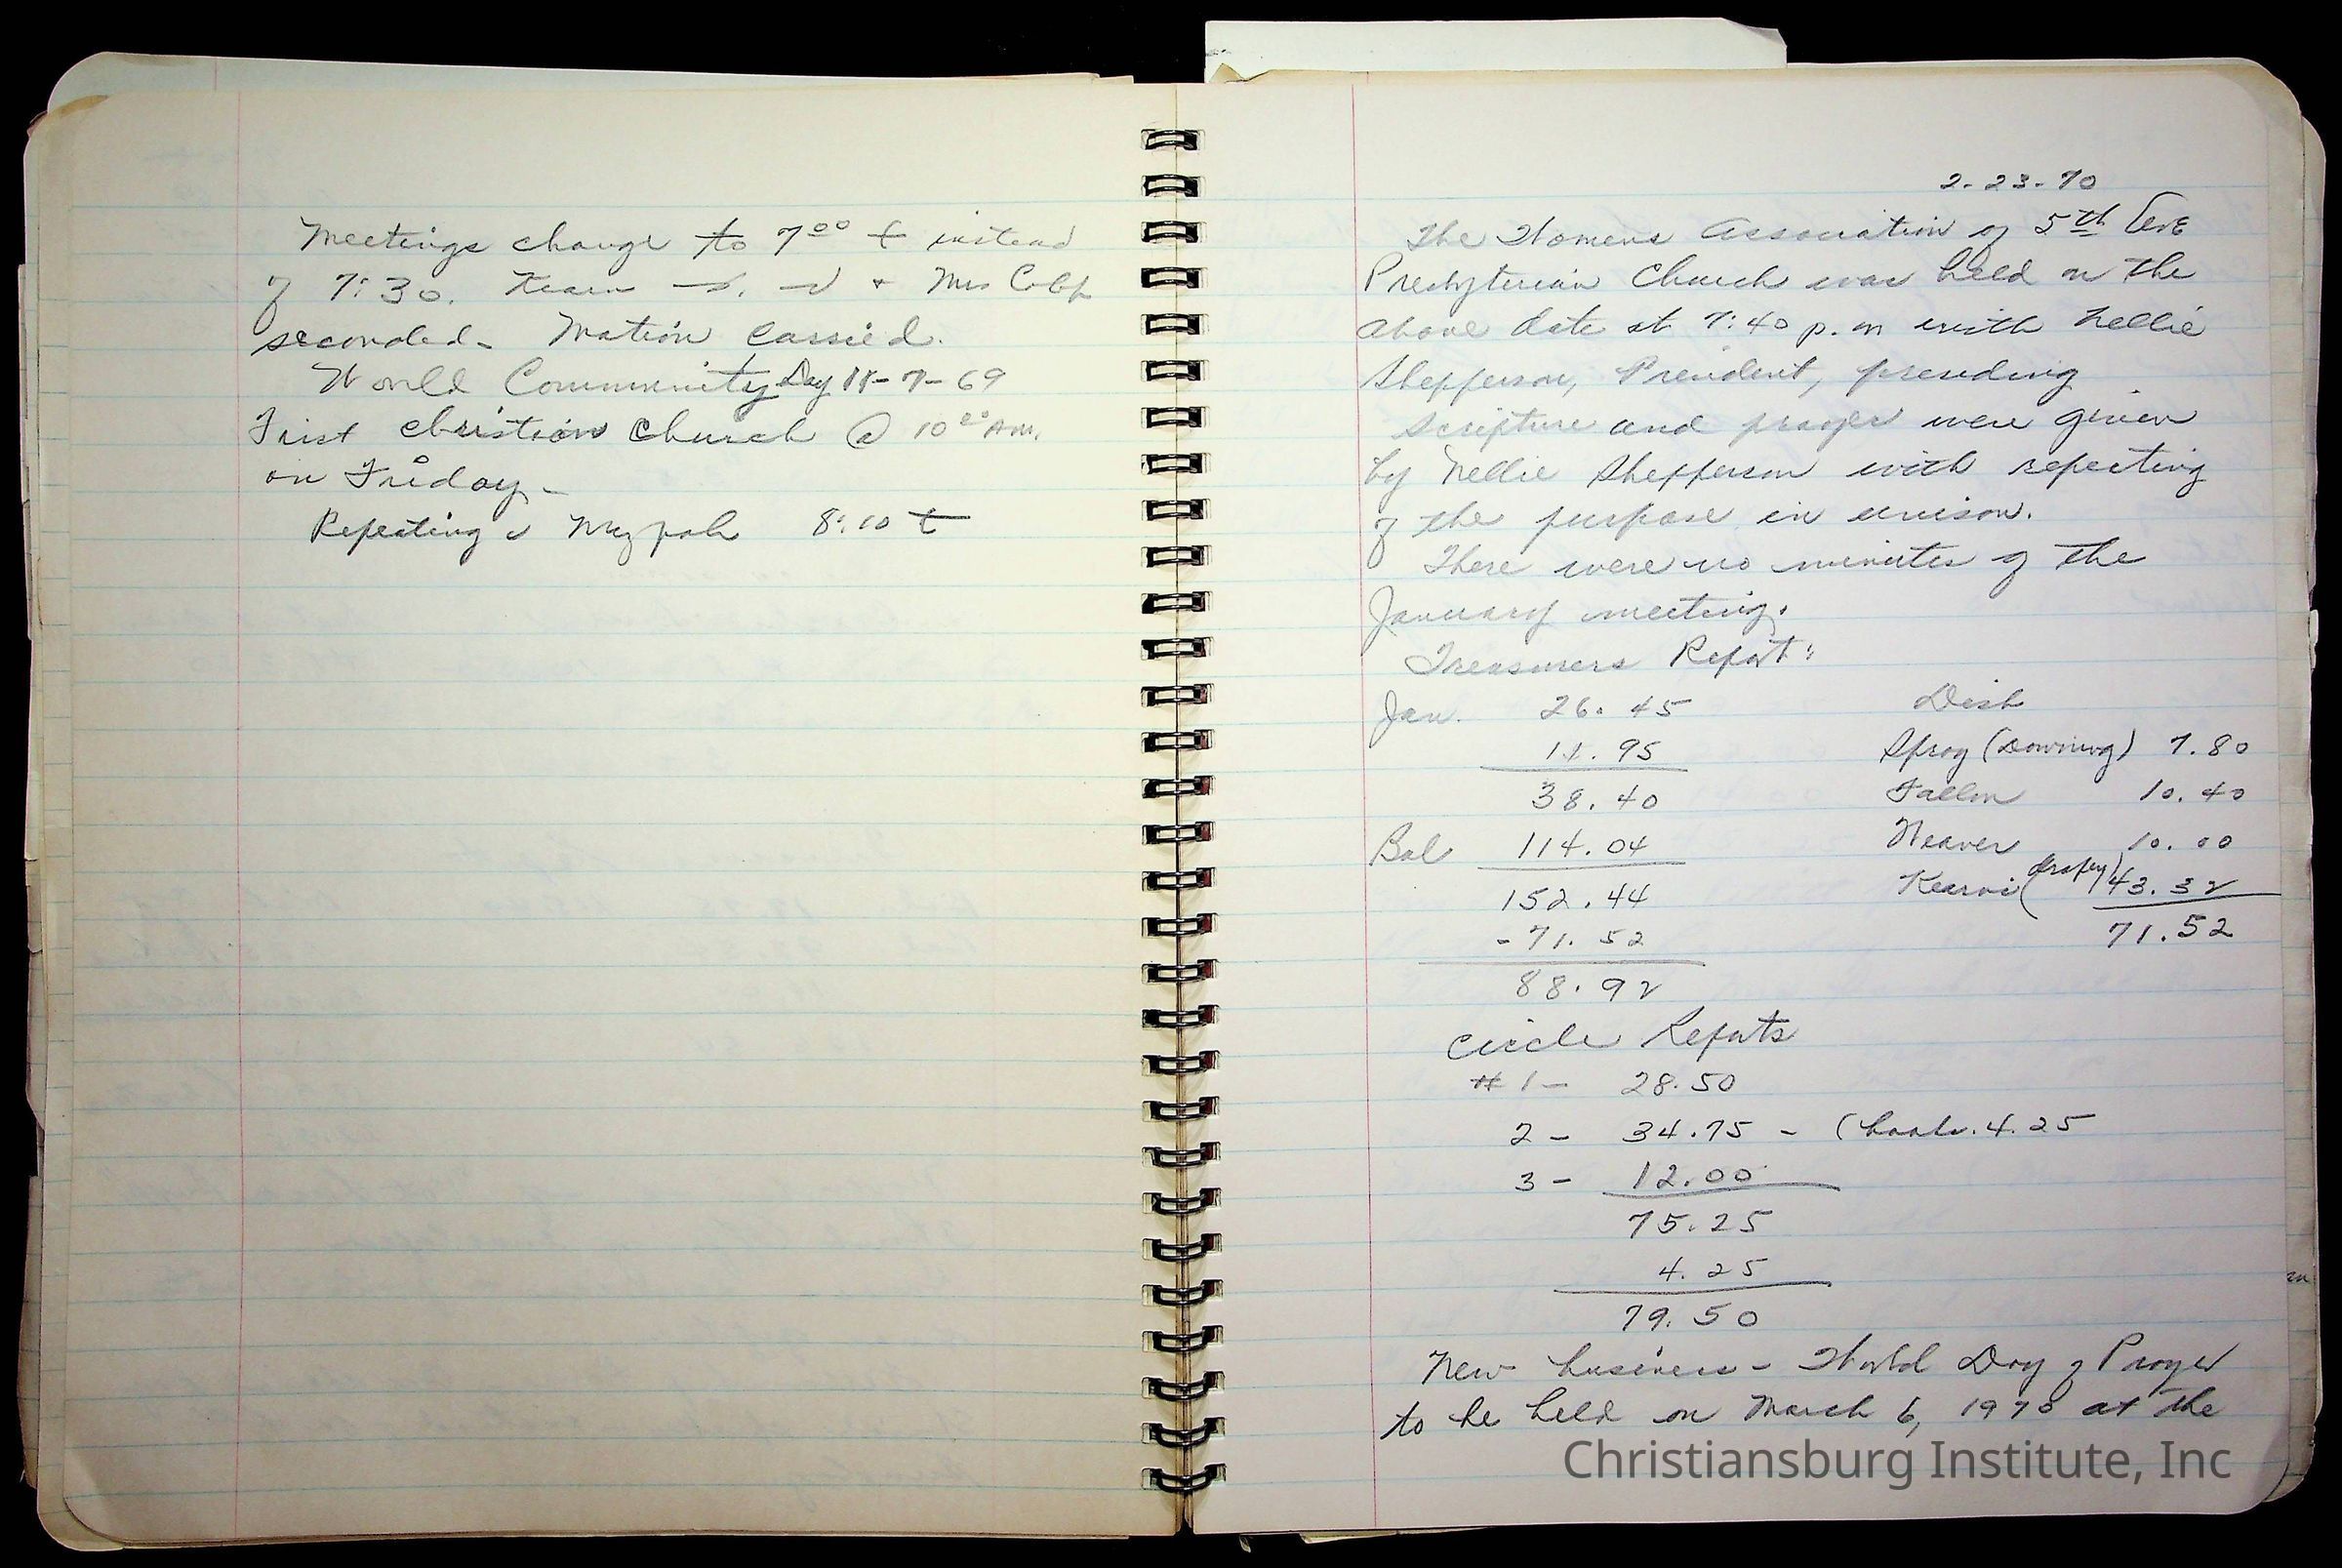 Meetings change to 7⁰⁰ instead
of 7:30. & Mrs Cobb
seconded. Motion carried.
World Community Day 11-7-69
First Christian Church @ 10⁰⁰ AM.
on Friday.
Repeating Mizpah 8:10
2-23-70
The Womens Association of 5th Ave
Presbyterian Church was held on the
above date at 7:40 p.m with Nellie
Shepperson, President, presiding
Scripture and prayer were given
by Nellie Shepperson with repeating
of the purpose in unison.
There were no minutes of the
January meeting.
Treasurers Report:
Jan. 26.45
11.95
38.40
Bal 114.04
152.44
-71.52
88.92
Disb
Spray (Downing) 7.80
Fallon 10.40
Weaver 10.00
(drapery) 43.32
71.52
Circle Reports
# 1- 28.50
2- 34.75 - (book. 4.25
3- 12.00
75.25
4.25
79.50
New business - World Day of Prayer
to be held on March 6, 1970 at the
Christiansburg Institute, Inc